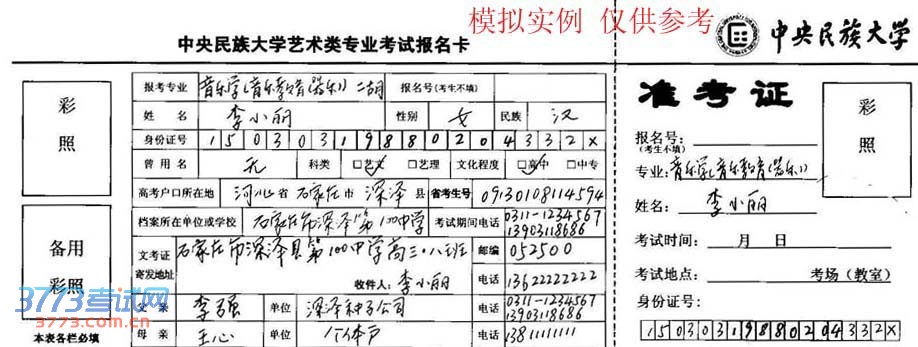 模拟实例 仅供参考
中央民族大学艺术类专业考试报名卡
中央民族大学
准考证
彩照
备用彩照
本表各栏必填
报考专业 音乐学(音乐教育(器乐)) 二胡 报名号(考生不填)
姓名 李小丽 性别 女 民族 汉
身份证号 15030319880204332X
曾用名 无 科类 □艺文 □艺理 文化程度 □高中 □中专
高考户口所在地 河北省 石家庄市 深泽县 省考生号 09130108114594
档案所在单位或学校 石家庄市深泽第100中学 考试期间电话 0311-1234567 13903118686
文考证寄发地址 石家庄市深泽县第100中学高三.八班 邮编 052500
收件人: 李小丽 电话 13622222222
父亲 李强 单位 深泽种子公司 电话 0311-1234567 13903118686
母亲 王心 单位 个体户 电话 13811111111
彩照
报名号:
(考生不填)
专业: 音乐学(音乐教育(器乐))
姓名: 李小丽
考试时间: 月 日
考试地点: 考场(教室)
身份证号:
15030319880204332X
3773考试网
www.3773.com.cn